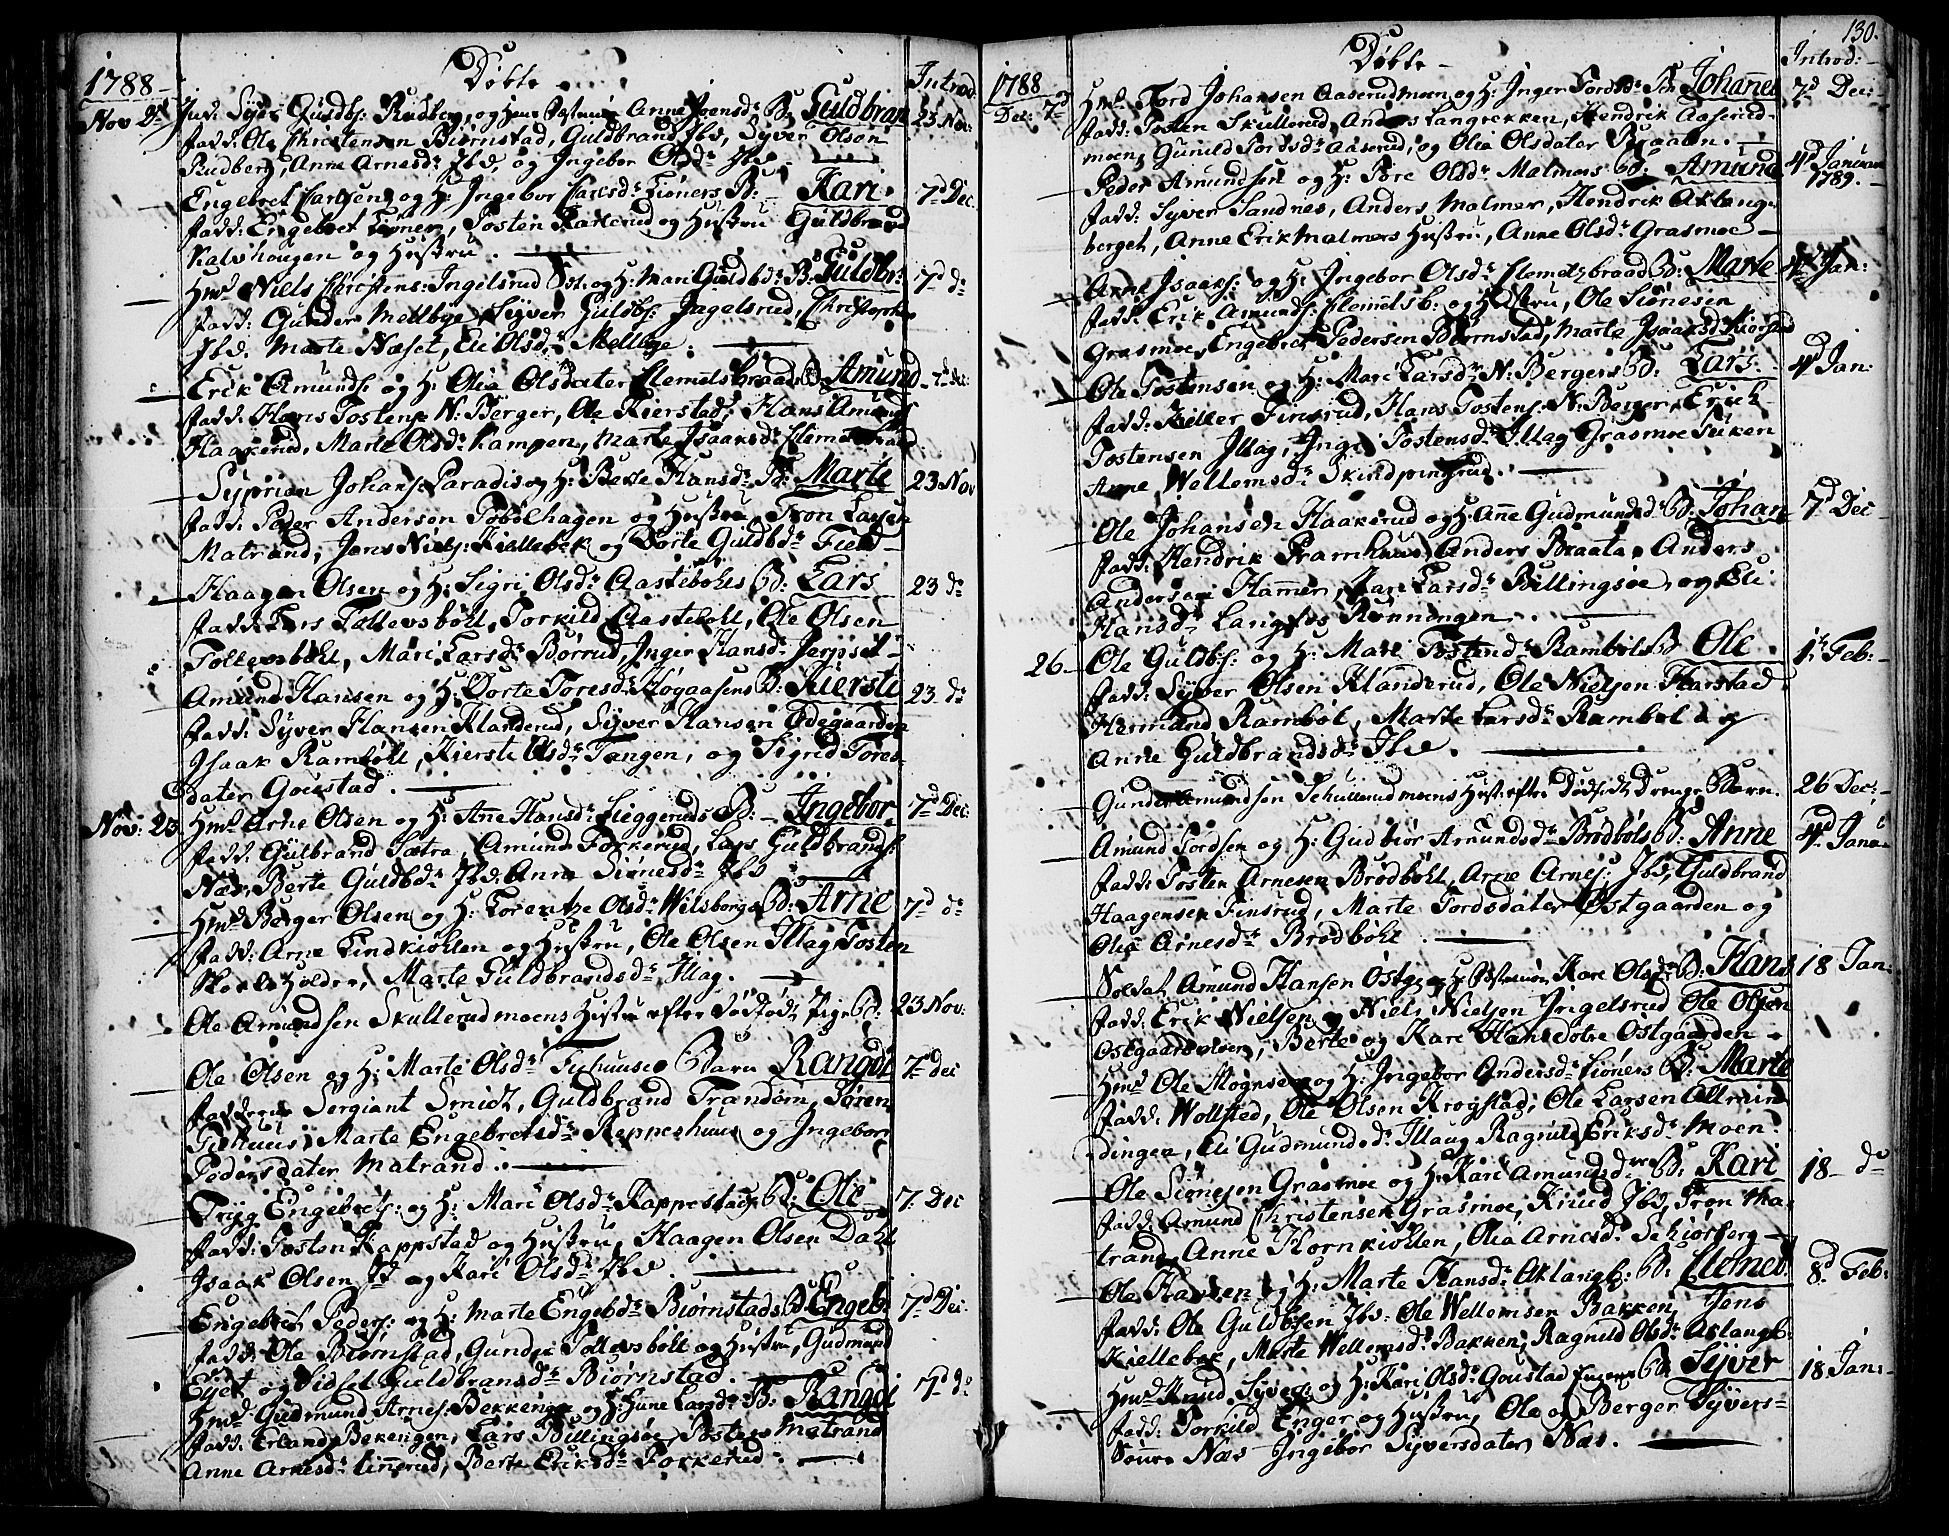 1788 Döbte Introd
Nov 2d Sÿver Guldbs: Rudberg, og Anne Joensd: B: Guldbran 23 Nov:
fadd: Ole Christensen Biørnstad, Guldbrand Ibd, Syver Olson
Rudberg, Anne Arnesdr Ibd, og Ingebor Olsdr Ibd
Engebret Carlsen og H: Ingebor Carlsdr Liøners B: Kari 7d Dec:
fadd: Engebret Liøner, Tosten Rakkerud og Hustru Guldbrand
Kalvhougen og Hustru.
Hmd Niels Christens: Ingelsrud og H: Mari Guldbdr B: Guldbr: 7d do
fadd: Gunder Mellbye Syver Guldbs: Ingelsrud, Christopher
Ibd, Marte Næset, Eli Olsdr Mellbye.
Erik Amunds: og H: Olia Olsdater Clemetsbraads B: Amund 7d dec:
fadd: Hans Tostens N: Berger, Ole Kierstad, Hans Amunds
Haakerud, Marte Olsdr Kampen, Marte Isaaksdr Clemetsbraad
Syprian Johans: Paradis og H: Berte Hansdr B: Marte 23 Nov
fadd: Peder Andersen Tobølhagen og Hustru, Tron Larsen
Matrand, Jens Niels: Kiellebek og Dorte Guldbdr Field
Haagen Olsen og H: Sigri Olsdr Aastebøhls B: Lars 23 do
fadd: Lars Tollevsbøll, Torkild Aastebøll, Ole Olsen
Tollevsbøhl, Mari Larsdr Børrud, Inger Hansdr Jerpset
Amund Hansen og H: Dorte Toresdr Høgaasens B: Kiersti 23 do
fadd: Syver Hansen Klanderud, Syver Hansen Ødegaarden
Isaak Rambøll, Kiersti Olsdr Tangen, og Sigrid Tores-
dater Goustad.
Nov: 23 Hmd Arne Olsen og H: Ane Hansdr Lieggeruds B: Ingebor 7d Dec:
fadd: Gulbrand Sætra, Amund Fokkerud, Lars Guldbrands:
Næs, Berte Guldbdr Ibd, Anne Siønesdr Ibd
Hmd Berger Olsen og H: Lorentze Olsdr Wilsborgs B: Arne 7d do
fadd: Arne Lindkiøhlen og Hustru, Ole Olsen Illag Tosten
holder, Marte Guldbrandsdr Illag.
Ole Amundsen Skullerudmoens Hustru efter Pige B: 23 Nov:
Ole Olsen og H: Marte Olsdr Barn Rangdi 7d dec
fadderne Sergiant Smidt, Guldbrand Trandem, Søren
Marte Engebretsdr Reppeshuus og Ingebor
Pedersdater Matrand.
Tryg Engebrets: og H: Mari Olsdr Kappestads B: Ole 7. Dec
fadd: Tosten Kappstad og Hustru, Haagen Olsen Dahl
Isaak Olsen Ibd og Kari Olsdr Ibd.
Engebret Peders: og H: Marte Engebdr Biørnstads B: Engeb: 7d Dec:
fadd: Ole Biørnstad, Gunder Tollevsbøll og Hustru, Gudmund
Eyet og Sidsel Guldbransdr Biørnstad.
Hmd Gudmund Arnes: Bekkengen og H: Sune Larsdr B: Rangdi 7d do
fadd: Erland Bekengen, Lars Billingsøe, Tosten Matrand
Anne Arnesdr Linnerud, Berte Eriksdr Fokkerud.
130.
1788 Döbte Introd:
Dec: 7d Hmd Tord Johansen Aaserudmoen og H: Inger Tordsdr B: Johannes 7d Dec:
fadd: Tosten Skullerud, Anders Langrekken, Hendrik Aaserud-
moen, Gunild Tordsdr Aaserud, og Olia Olsdater Braaten.
Peder Amundsen og H: Olsdr Malmers B: Amund 4d Januar 1789.
fadd: Syver Sandnes, Anders Malmer, Hendrik Aklang-
berget, Anne Erik Malmers Hustru, Anne Olsdr Grasmoe
Arne Isaaks: og H: Ingebor Olsdr Clemetsbraad B: Marte 4d Jan:
fadd: Erik Amunds: Clemetsb: og Hustru, Ole Siønesen
Grasmoe, Engebret Pedersen Biørnstad, Marte Isaaksdr Kiørstad
Ole Tostensen og H: Mari Larsdr N: Bergers B: Lars 4d Jan:
fadd: Finsrud, Hans Tostens: N: Berger, Erich
Tostensen Illag, Inger Tostensdr Illag Grasmoe
Anne Wellemsdr Skindpungrud.
Ole Johansen Haakerud og H: Anne Gudmundsdr B: Johan 7d Dec
fadd: Hendrik Pramhuus, Anders Braata, Anders
Andersen Hamer, Kari Larsdr Billingsøe, og Eli
Hansdr Langfos Rønningen.
26 Ole Guldbs: og H: Mari Tostensdr Rambøls B: Ole 1t Feb:
fadd: Syver Olsen Klanderud, Ole Nielsen Harstad
Hermand Rambøl, Marte Larsdr Rambøl og
Anne Guldbrandsdr Ibd.
Gunder Amundsen Schullerudmoens Hust: efter Dödfödt Drenge Barn. 26 Dec:
Amund Tordsen og H: Gudbiør Amundsdr Brødbøls B: Anne 4d Janu
fadd: Tosten Arnesen Brødbøhl, Arne Arnes: Ibd, Guldbrand
Haagensen Finsrud, Marte Tordsdater Østgaarden og
Olia Arnesdr Brødbøhl
Soldat Amund Hansen Østg: og H: Kari Olsdr B: Hans 18 Jan:
fadd: Erik Nielsen og Niels Nielsen Ingelsrud Ole Olsen
Østgaarden, Berte og Kari Hansdøtre Østgaarden
Hmd Ole Mognsen og H: Ingebor Andersdr Liøners B: Marte
fadd: Wollsted, Ole Olsen Krogstad, Ole Larsen Allmin
dingen, Eli Gudmundsdr Illaug Ragnild Eriksdr Moen.
Ole Siønesen Grasmoe og H: Kari Amundsdr B: Kari 18 do
fadd: Amund Christensen Grasmoe, Knud Ibd, Tron Ma
trand, Anne Kornkiøhlen, Olia Arnesdr Schiørberg
Ole Hansen og H: Marte Hansdr Aklangb: B: Clemet 8d Feb:
fadd: Ole Guldbsen Ibd, Ole Wellemsen Bakken, Jens
Kiellebek, Marte Wellemsdr Bakken, Ragnild Olsdr Aklangb:
Hmd Knud Syvers: og H: Kari Olsdr Goustad B: Syver 18 Jan:
fadd: Torkild Enger og Hustru, Ole og Berger Syvers=
Sønner Næs Ingebor Syversdater Næs.